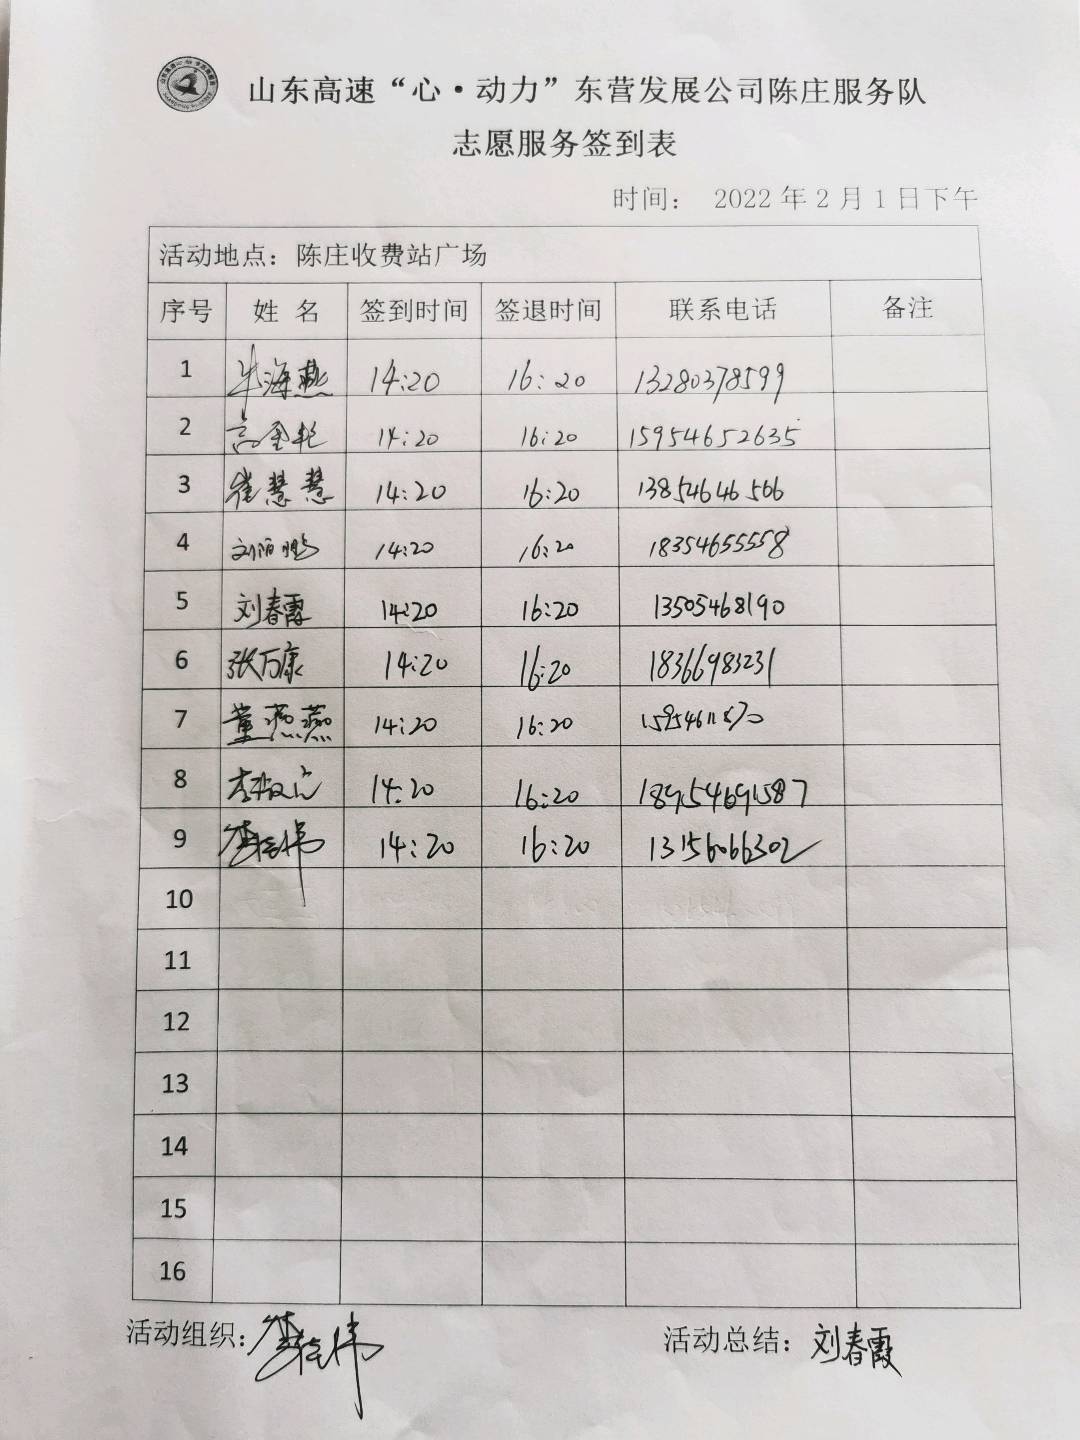 山东高速“心·动力”东营发展公司陈庄服务队
志愿服务签到表
时间： 2022年2月1日下午
活动地点：陈庄收费站广场
序号 姓 名 签到时间 签退时间 联系电话 备注
1 牛海燕 14:20 16:20 13280378599
2 14:20 16:20 15954652635
3 崔慧慧 14:20 16:20 13854646566
4 14:20 16:20 18354655558
5 刘春霞 14:20 16:20 13505468190
6 张万康 14:20 16:20 18366983231
7 董燕燕 14:20 16:20
8 14:20 16:20 18954691587
9 14:20 16:20 13156066302
10
11
12
13
14
15
16
活动组织： 活动总结：刘春霞